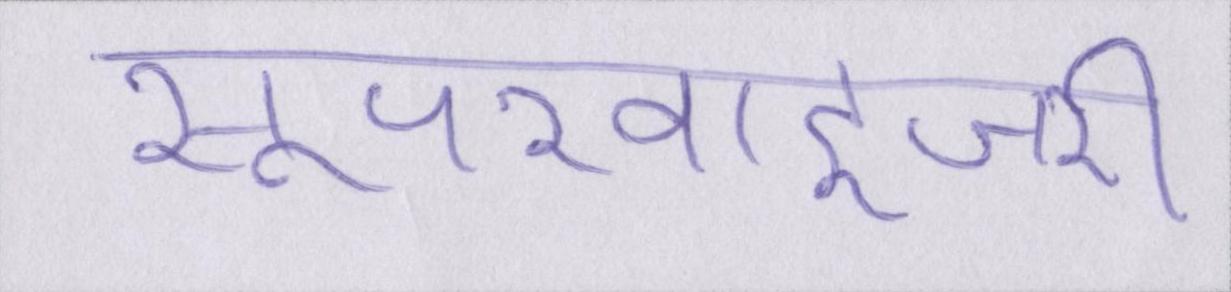 सूपरवाइजरी